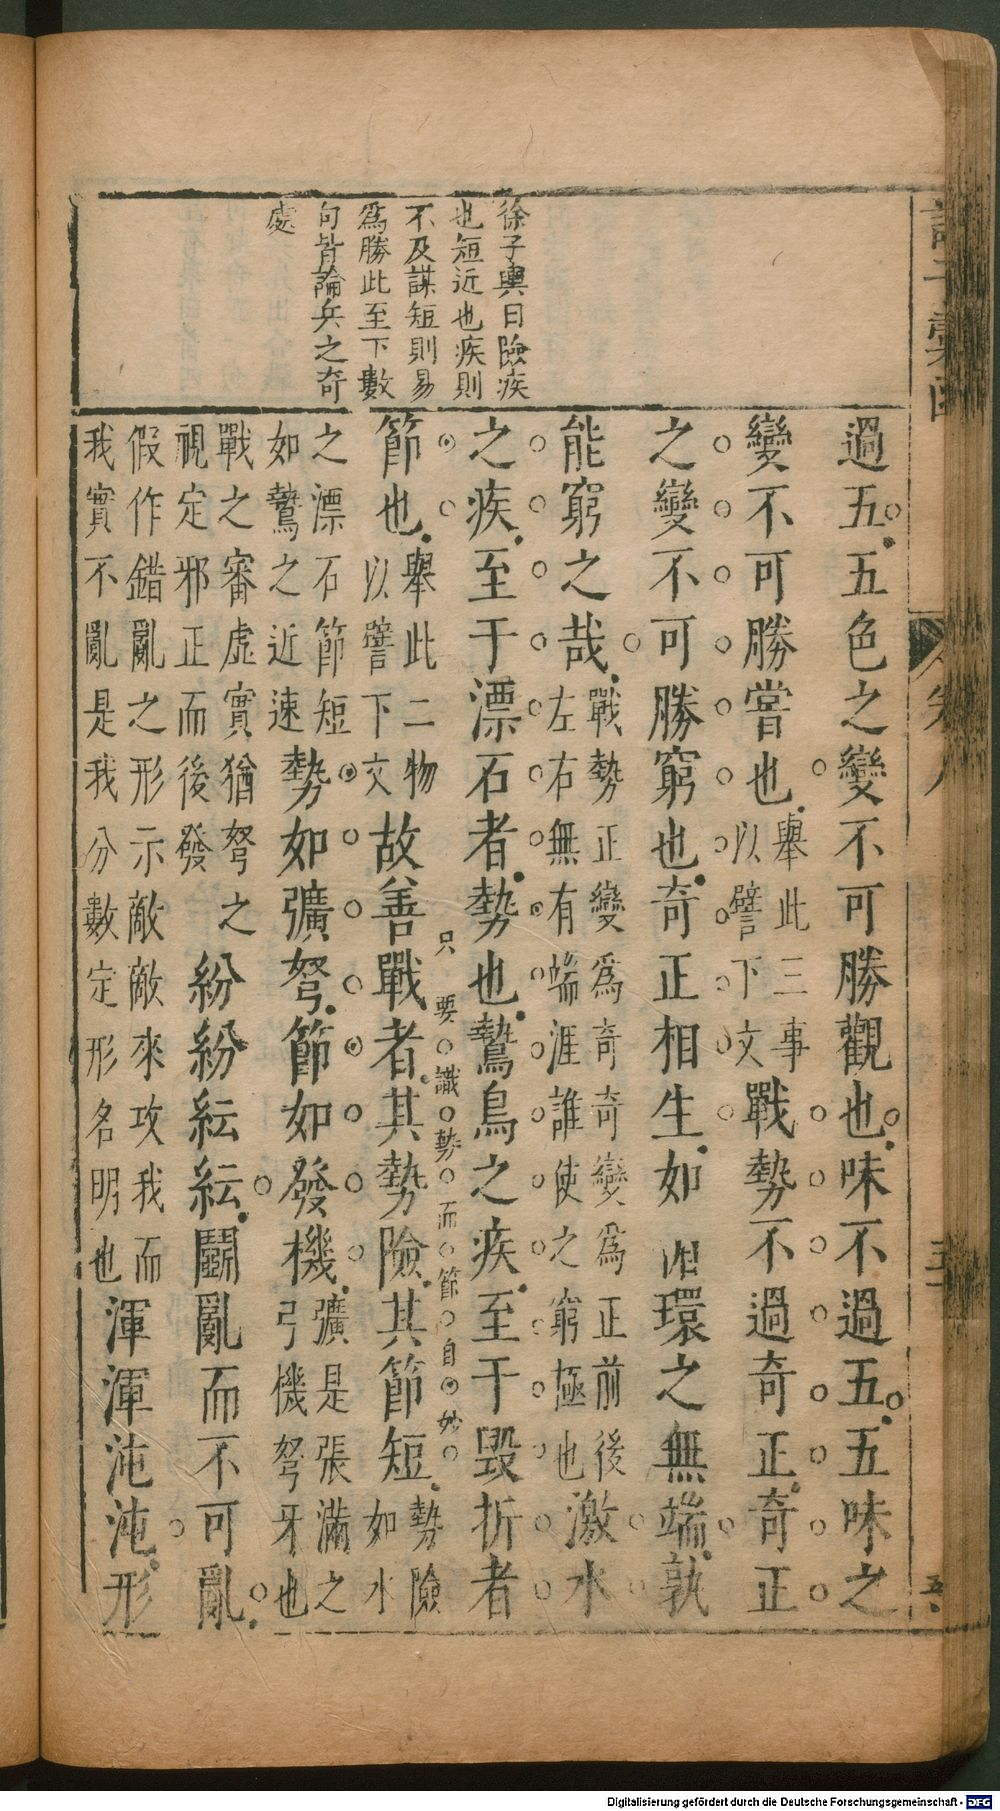 徐子與曰險疾
也短近也疾則
不及謀短則易
爲勝此至下數
句皆論兵之奇
處
過五五色之變不可勝觀也味不過五五味之
變不可勝嘗也舉此三事以譬下文戰勢不過奇正奇正
之變不可勝窮也奇正相生如環之無端孰
能窮之哉戰勢正變爲奇奇變爲正前後左右無有端涯誰使之窮極也激水
之疾至于漂石者勢也鷙鳥之疾至于毀折者
只要識勢而節自妙
節也舉此二物以譬下文故善戰者其勢險其節短勢險如水
之漂石節短如鷙之近速勢如彍弩節如發機彍是張滿之弓機弩牙也
戰之審虛實猶弩之視定邪正而後發紛紛紜紜鬬亂而不可亂
假作錯亂之形示敵敵來攻我而我實不亂是我分數定形名明也渾渾沌沌形
Digitalisierung gefördert durch die Deutsche Forschungsgemeinschaft - DFG